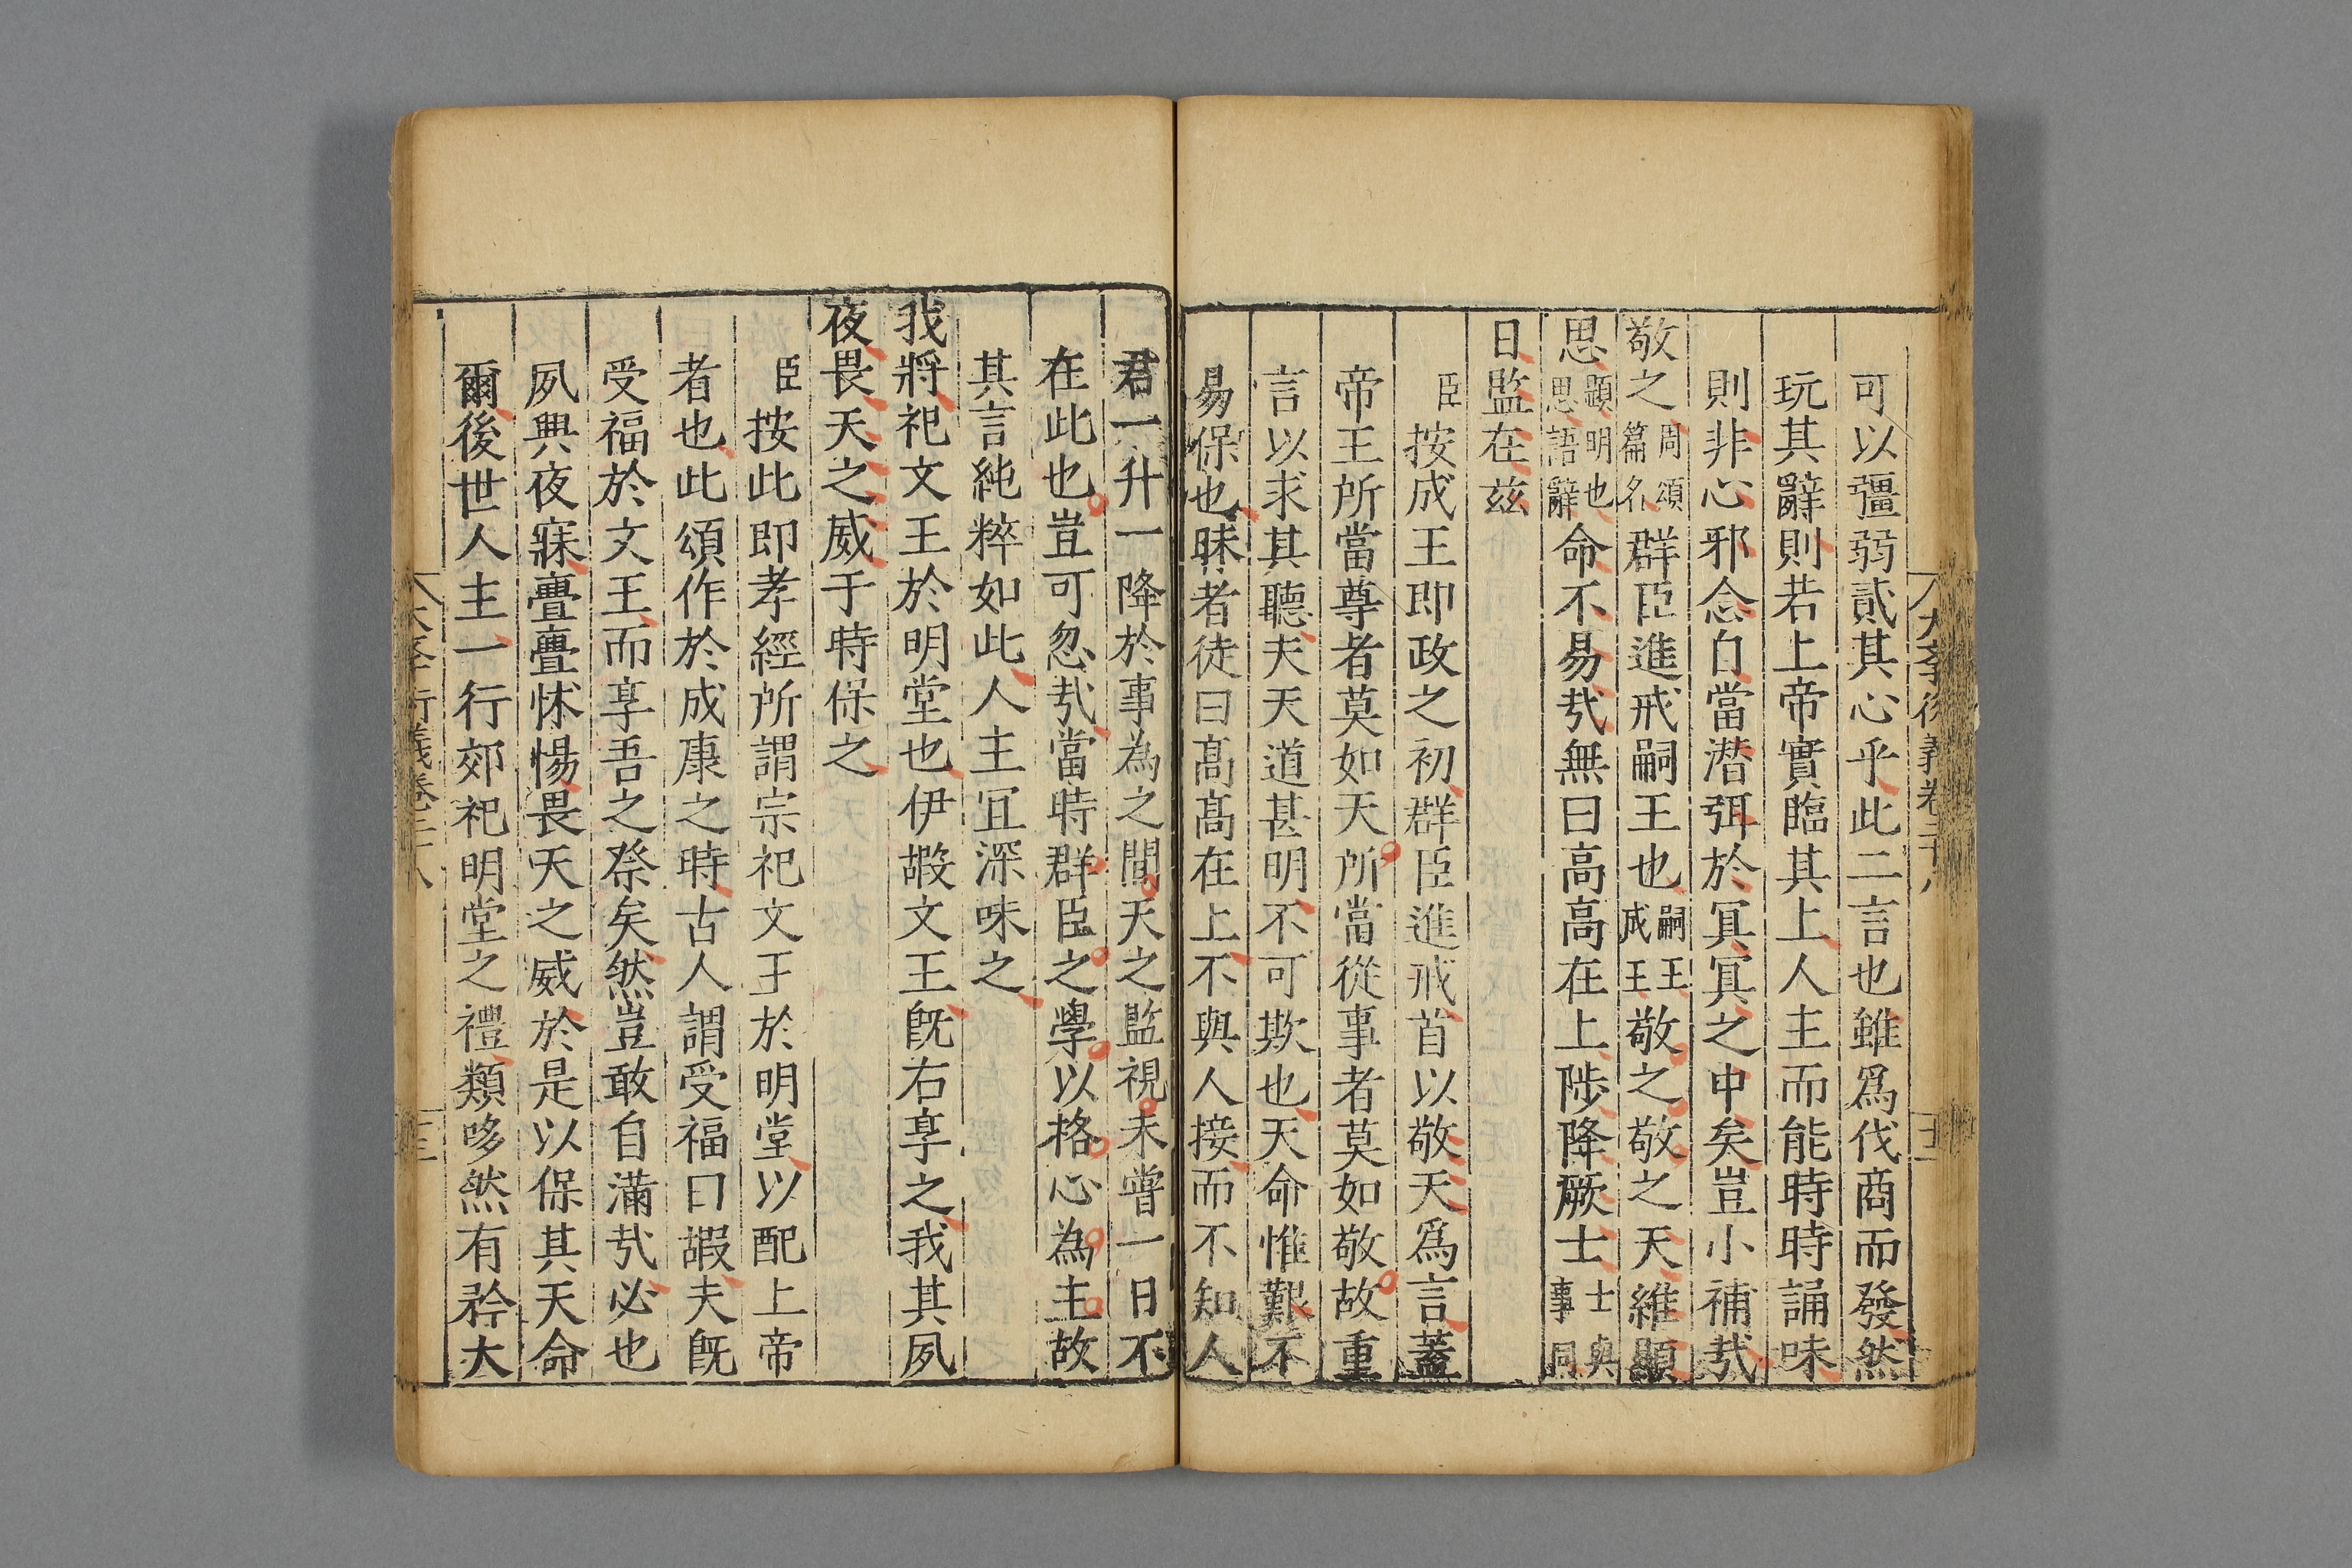 大學衍義卷二十八
可以彊弱貳其心乎此二言也雖爲伐商而發然
玩其辭則若上帝實臨其上人主而能時時誦味
則非心邪念自當潜弭於冥冥之中矣豈小補㢤
敬之周頌篇名群臣進戒嗣王也嗣王成王敬之敬之天維顯
思顯明也思語辭命不易㢤無曰高高在上陟降厥士士與事同
日監在兹
臣按成王即政之初群臣進戒首以敬天爲言蓋
帝王所當尊者莫如天所當從事者莫如敬故重
言以求其聽夫天道甚明不可欺也天命惟艱不
易保也昧者徒曰髙髙在上不與人接而不知人
君一升一降於事為之間天之監視未嘗一日不
在此也豈可忽㢤當時群臣之學以格心為主故
其言純粹如此人主冝深味之
我將祀文王於明堂也伊嘏文王旣右享之我其夙
夜畏天之威于時保之
臣按此即孝經所謂宗祀文王於明堂以配上帝
者也此頌作於成康之時古人謂受福曰嘏夫旣
受福於文王而享吾之祭矣然豈敢自滿㢤必也
夙興夜寐亹亹怵惕畏天之威於是以保其天命
爾後世人主一行郊祀明堂之禮類哆然有矜大
大學衍義卷二十八